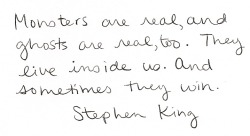 Monsters are real, and
ghosts are real, too. They
live inside us. And
sometimes they win.
Stephen King